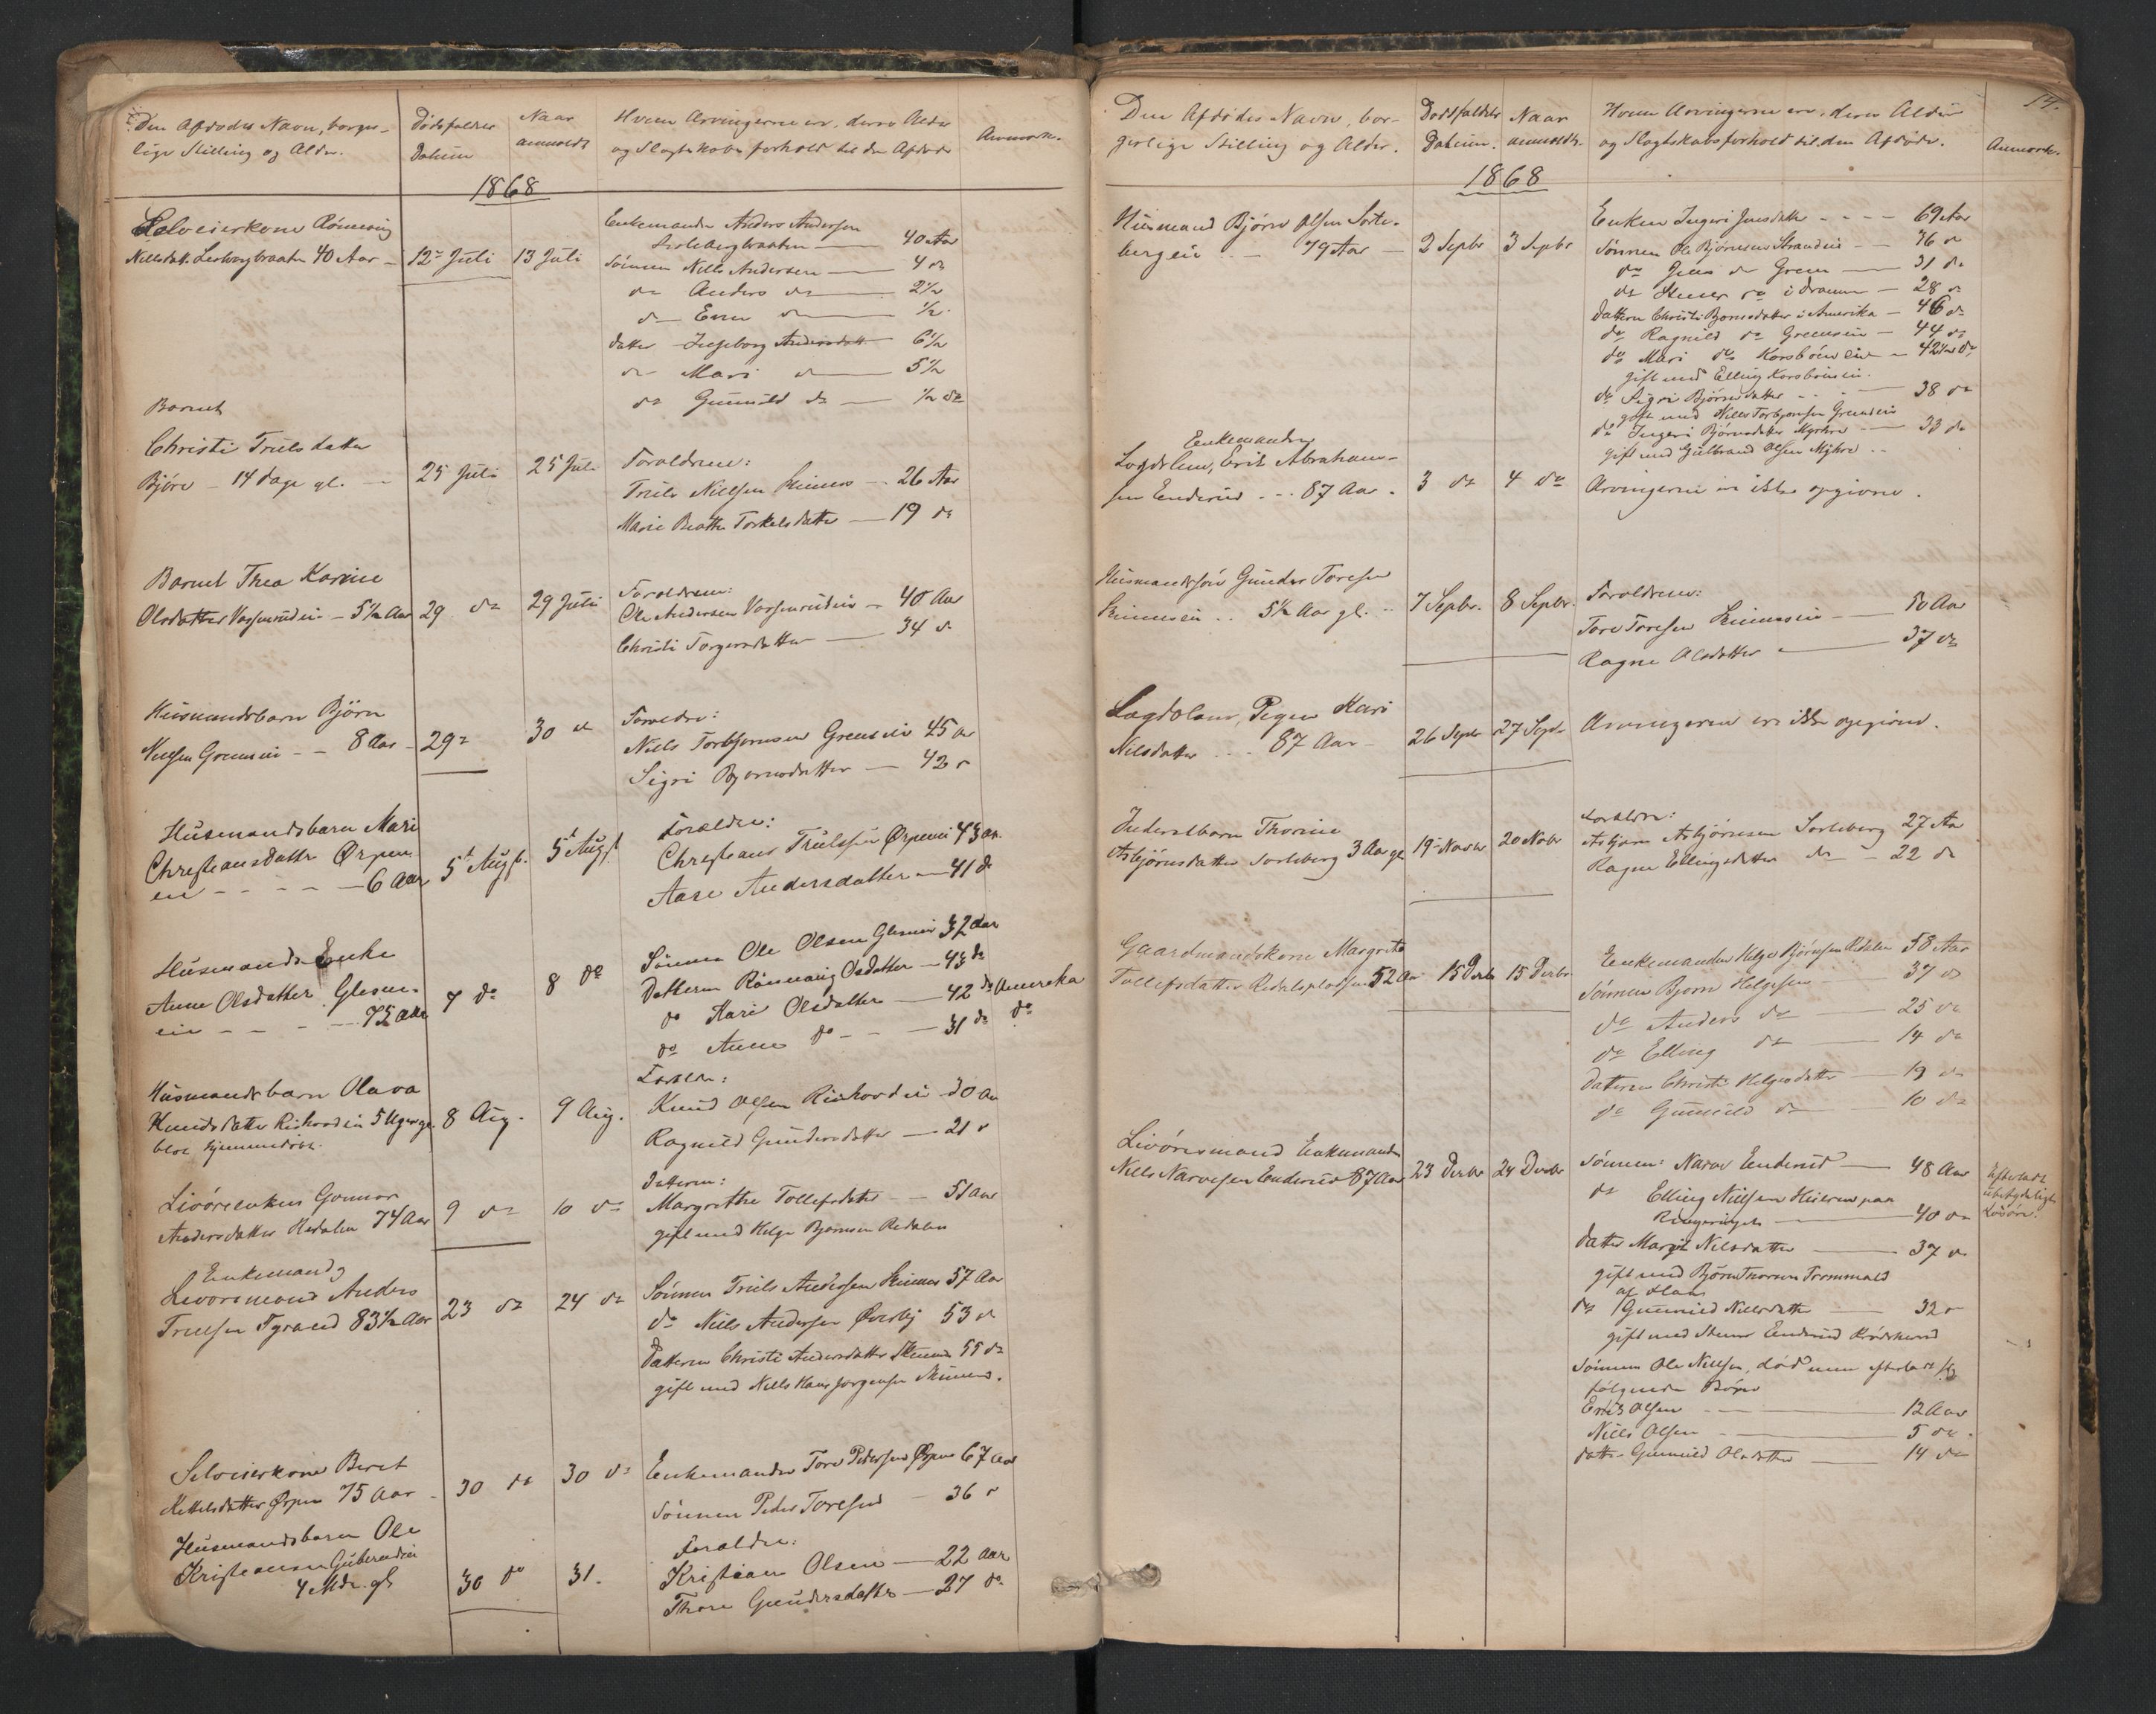 Den Afdødes Navn, borger-
lige Stilling og Alder.
Dødsfaldets
Datum
Naar
anmeldt
Hvem Arvingerne ere, deres Alder
og Slagtskabsforhold til den Afdøde
Anmærk.
1868
Selveierkone Rønnaug
Nilsdatt. 40 Aar
12te Juli
13 Juli
Enkemanden Anders Andersen
40 Aar
Sønnen Nills Andersen 4 do
do Anders do 2½
do Even do ½
Datter Ingeborg Andersdatt 6½
do Mari do 5½
do Gunnild do ½ do
Barnet
Christi Trulsdatter
Bjøre - 14 dage gl.
25 Juli
25 Juli
Foraldrene:
Truls Nielsen 26 Aar
Marie Beathe Torkelsdatter 19 do
Barnet Thea Karine
Olsdatter 5½ Aar
29 do
29 Juli
Foraldrene:
Ole Andersen 40 Aar
Christi Torgersdatter 34 do
Husmandsbarn Bjørn
Nielsen Grenseie - - 8 Aar
29
30 do
Foraldre:
Niels Torbjørnsen Grenseie 45 Aar
Sigri Bjørnsdatter 42
Husmandsbarn Mari
Christiansdatter Ørpen
eie - - - - 6 Aar
5te Augst.
5te Augst
Foraldre:
Christians Trulssen Ørpeneie 43 Aar
Aase Andersdatter - 41 do
Husmands Enke
Anne Olsdatter Glesne-
eie - - - - 75 Aar
7 do
8 do
Sønnen Ole Olsen Glesneie 32 Aar
Datteren Rønnaug Olsdatter 43 do
do Kari Olsdatter 42 do Amerika
do Anne do - - 31 do do
Husmandsbarn Olava
Knudsdatter 5 Uger gl.
blot hjemmedøbt.
8 Aug.
9 Aug.
Foraldre:
Knud Olsen 30 Aar
Ragnild Gundersdatter 21
Livørsenken Gonnor
Andersdatter Redalen 74 Aar
9 do
10 do
Datteren:
Margrethe Tollefsdatter 51 Aar
gift med Helge Bjørnsen Redalen
Enkemand
Livørsmand Anders
Trulsen 83½ Aar
23 do
24 do
Sønnen Truls Andersen 57 Aar
do Niels Andersen Øvrebÿ 53 do
Datteren Christi Andersdatter 55 do
gift med Niels Hans Jørgensen
Selveierkone Beret
Kittilsdatter Ørpen 75 Aar
30 do
30 do
Enkemanden Tore Pedersen Ørpen 67 Aar
Sønnen Peder Toresen 36
Husmandsbarn Ole
Kristiansen
4 Mdr. gl.
30 do
31.
Foraldre:
Kristian Olsen 22 Aar
Thore Gundersdatter 27 do
14.
Den Afdødes Navn, bor-
gerlige Stilling og Alder.
Dødsfaldets
Datum.
Naar
anmeldt.
Hvem Arvingerne ere, deres Alder
og Slagtskabsforhold til den Afdøde.
Anmærk.
1868
Husmand Bjørn Olsen Sorte-
bergeie - 79 Aar
2 Septbr
3 Septbr
Enken Ingeri Jensdatter - - - - 69 Aar
Sønnen Ole Bjørnsen Strandeie 36 do
do Jens do Grenseie 31 do
do Stener do i Dramm 28 do
Datteren Christi Bjørnsdatter i Amerika - 46 do
do Ragnild do Grenseie 44 do
do Mari do Korsbøneie 42½ do
gift med Elling Korsbøneie.
do Sigri Bjørnsdatter 38 do
gift med Niels Torbjørnsen Grenseie
do Ingeri Bjørnsdatter Myhre 33 do
gift med Gulbrand Olsen Myhre
Enkemanden
Lægdslem, Erik Abraham-
sen Enderud - - 87 Aar
3 do
4 do
Arvingerne er ikke opgivne.
Husmandssøn Gunder Toresen
5½ Aar gl.
7 Septbr.
8 Septbr.
Foraldrene:
Tore Toresen 50 Aar
Ragne Olsdatter 37 do
Lægdslem, Pigen Kari
Nilsdatter - - 87 Aar
26 Septr
27 Septr
Arvingerne ere ikke opgivne.
Inderstbarn Thorine
Asbjørnsdatter Sorteberg 3 Aar gl
19 Novbr
20 Novbr
Foraldre:
Asbjørn Asbjørnsen Sorteberg 27 Aar
Ragne Ellingsdatter do - 22 do
Gaardmandskone Margrete
Tollefsdatter 52 Aar
15 Decbr
15 Decbr
Enkemanden Helge Bjørnsen Redalen 58 Aar
Sønnen Bjørn Helgesen 37 do
do Anders do 25 do
do Elling do 14 do
Datteren Christi Helgesdatter 19 do
do Gunnild do 10 do
Livøresmand Enkemand
Niels Narvesen Enderud 87 Aar
23 Decbr
24 Decbr
Sønnen: Narve Enderud 48 Aar
do Elling Nielsen paa
Ringerige 40 do
Datter Margit Nilsdatter 37 do
gift med Bjørn
af Flaa
do Gunnild Nielsdatter 32
gift med Stener Enderud Krødsherred
Sønnen Ole Nielsen, død men efterladt sig
følgende Børn
Erik Olsen 12 Aar
Niels Olsen 5 do
datter Gunnild Olsdatter 14 do
Efterladt
ubetydeligt
Løsøre.